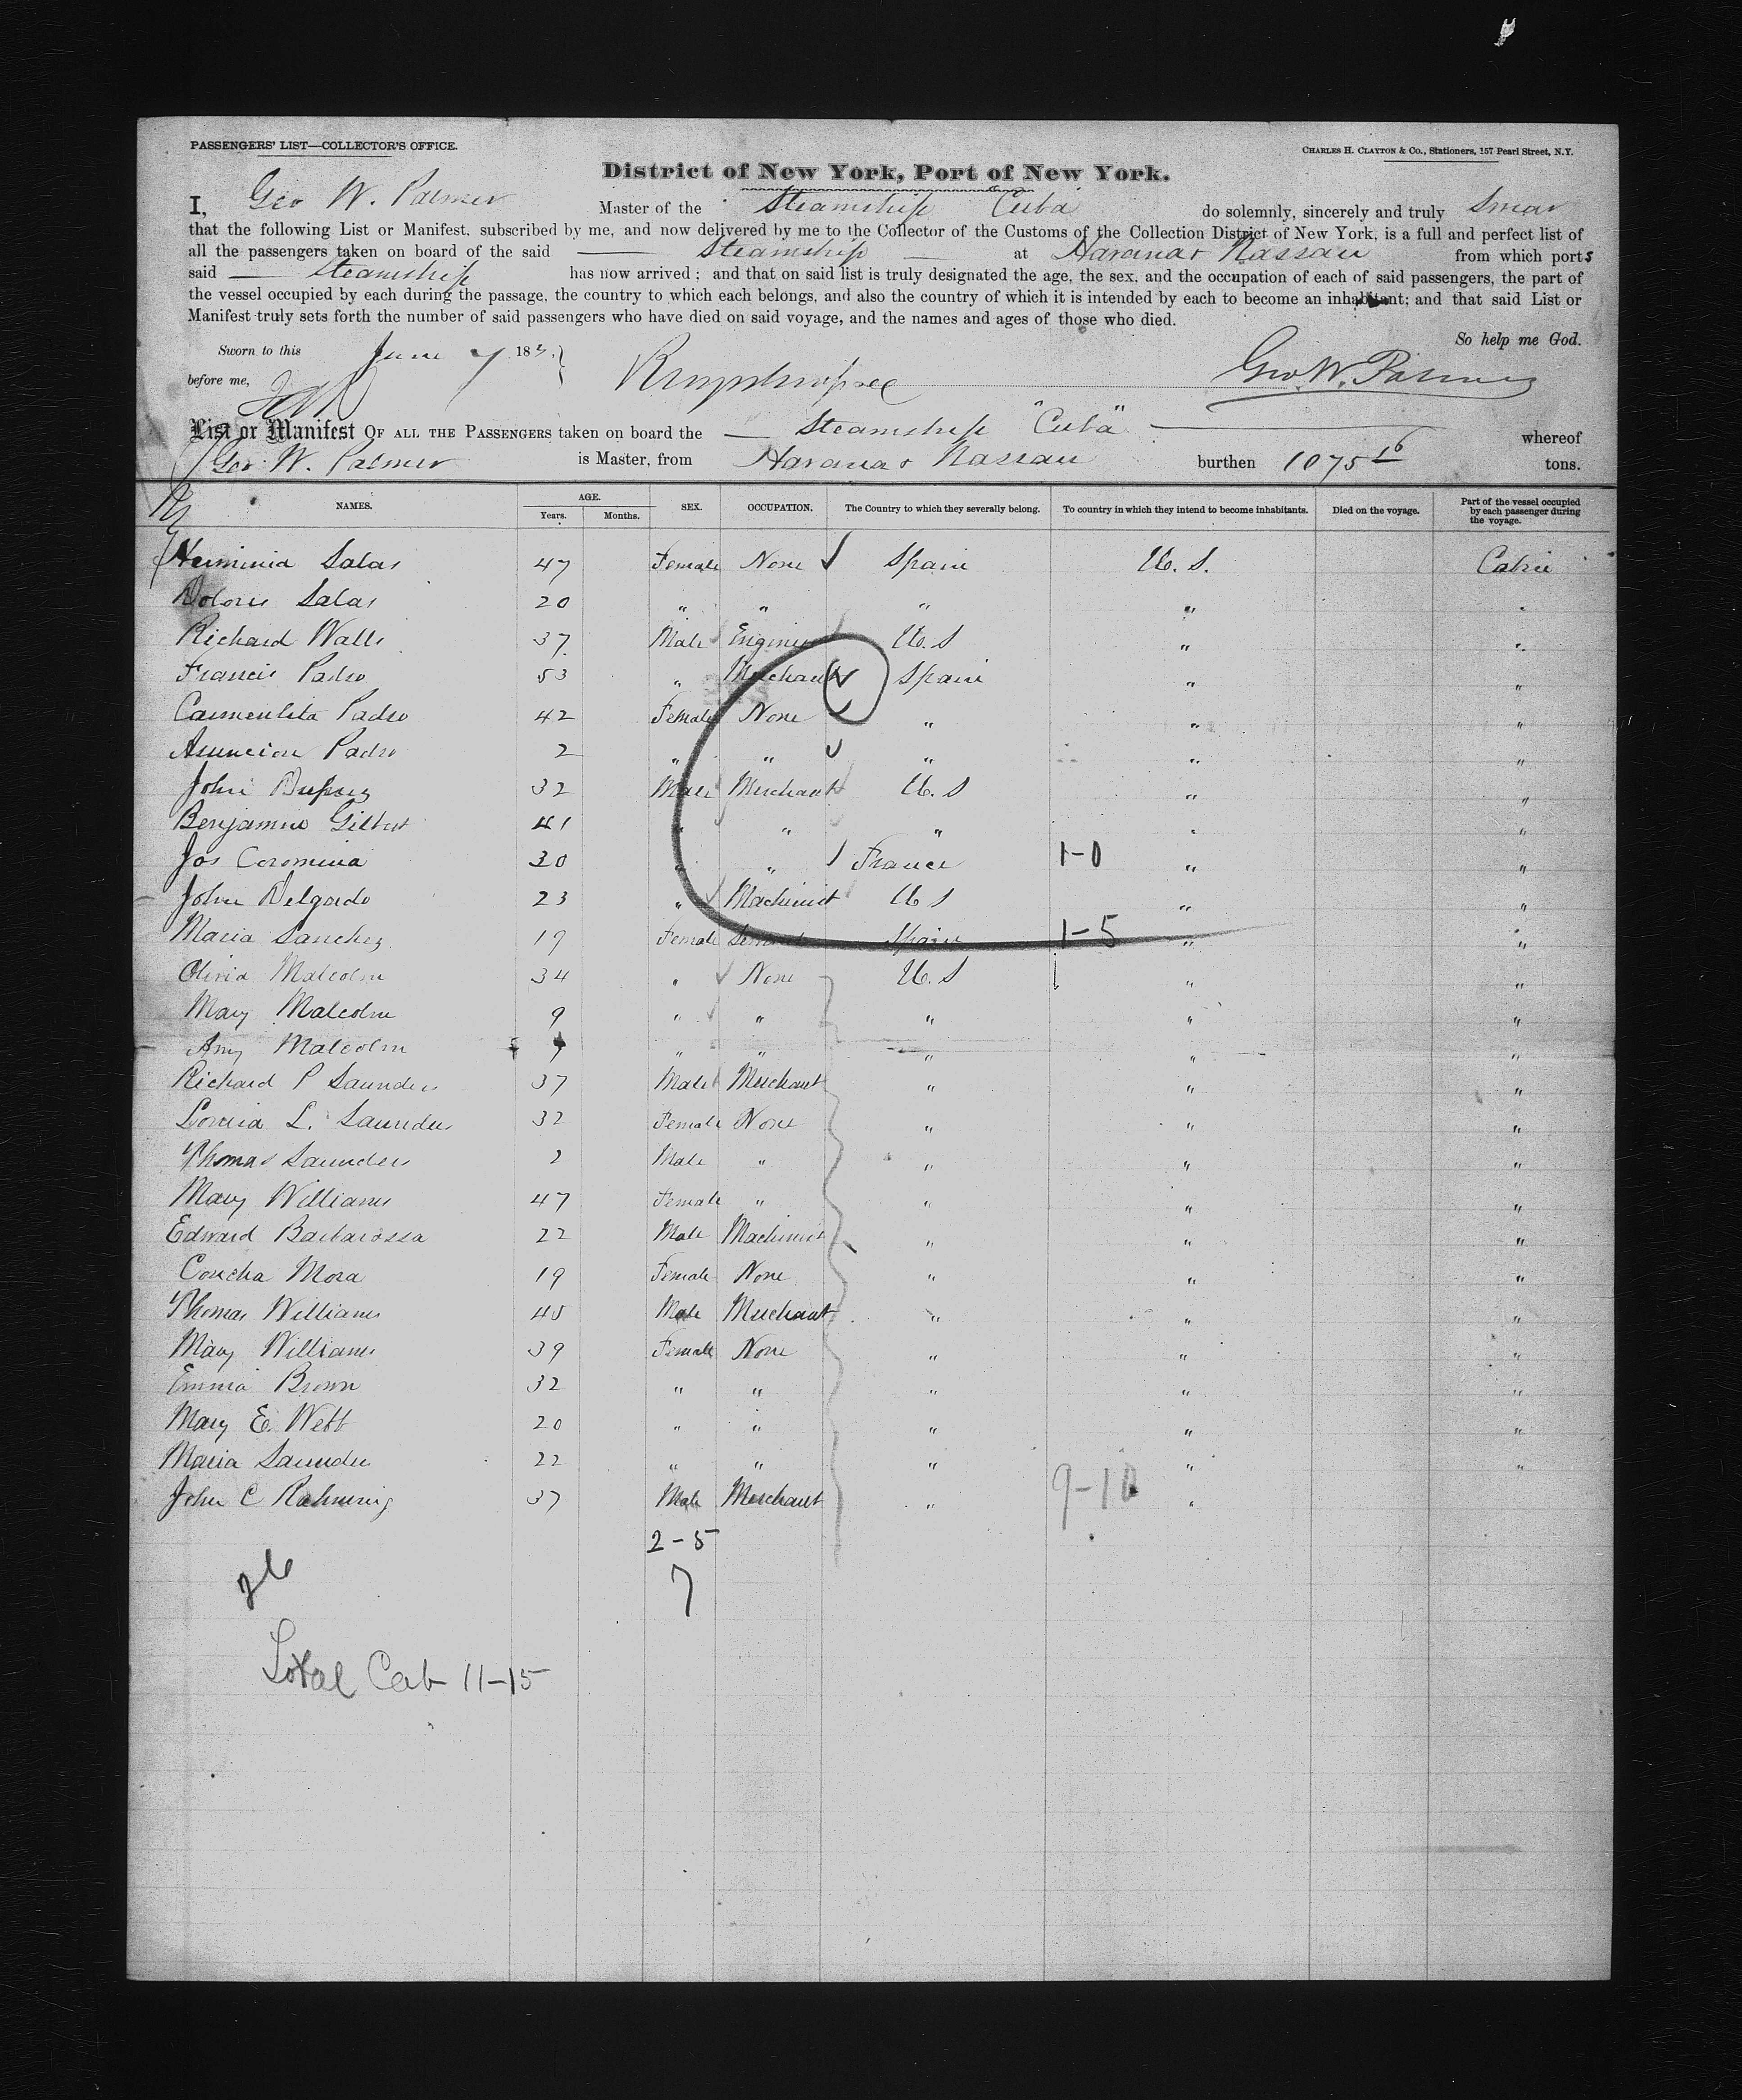 PASSENGERS' LIST—COLLECTOR'S OFFICE.
CHARLES H. CLAYTON & CO., Stationers, 157 Pearl Street, N.Y.
District of New York, Port of New York.
I, Geo W. Palmer Master of the Steamship Cuba do solemnly, sincerely and truly swear
that the following List or Manifest, subscribed by me, and now delivered by me to the Collector of the Customs of the Collection District of New York, is a full and perfect list of
all the passengers taken on board of the said Steamship at Havana & Nassau from which ports
said Steamship has now arrived; and that on said list is truly designated the age, the sex, and the occupation of each of said passengers, the part of
the vessel occupied by each during the passage, the country to which each belongs, and also the country of which it is intended by each to become an inhabitant; and that said List or
Manifest truly sets forth the number of said passengers who have died on said voyage, and the names and ages of those who died.
So help me God.
Sworn to this June 7 18
before me, Geo. W. Palmer
List or Manifest OF ALL THE PASSENGERS taken on board the Steamship "Cuba" whereof
Geo W. Palmer is Master, from Havana & Nassau burthen 1075 16 tons.
NAMES. AGE. Years. Months. SEX. OCCUPATION. The Country to which they severally belong. To country in which they intend to become inhabitants. Died on the voyage. Part of the vessel occupied by each passenger during the voyage.
Herminia Salas 47 Female None Spain U. S. Cabin
Dolores Salas 20 " " " " "
Richard Walls 37 Male Engineer U. S " "
Francis Padro 53 " Merchant Spain " "
Carmenlita Padro 42 Female None " " "
Asuncion Padro 2 " " " " "
John 32 Male Merchant U. S " "
Benjamin Gilbert 41 " " " " "
Jos Coromina 30 " " France 1-0 " "
John Delgado 23 " Machinist U S " "
Maria Sanchez 19 Female Servant Spain 1-5 " "
Olivia Malcolm 34 " None U. S " "
Mary Malcolm 9 " " " " "
Amy Malcolm 7 " " " " "
Richard P Saunders 37 Male Merchant " " "
L. Saunders 32 Female None " " "
Thomas Saunders 2 Male " " " "
Mary Williams 47 Female " " " "
Edward Barbarossa 22 Male Machinist " " "
Concha Mora 19 Female None " " "
Thomas Williams 45 Male Merchant " " "
Mary Williams 39 Female None " " "
Emma Brown 32 " " " " "
Mary E. Webb 20 " " " " "
Maria Saunders 22 " " " " "
John C Rahming 37 Male Merchant " 9-10 "
2-5
7
26
Total Cab 11-15